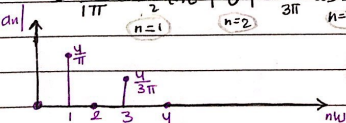 an| 1π 2 3π
n=1 n=2 n=
4/π
4/3π
1 2 3 4 nw